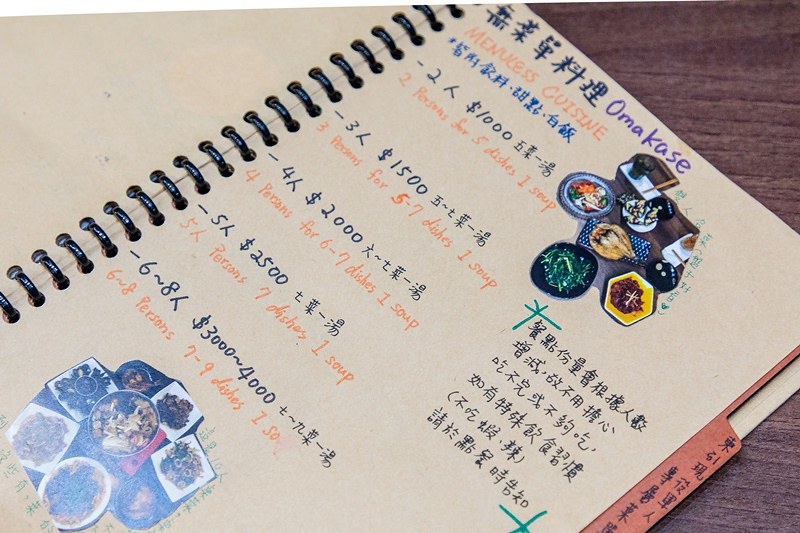 無菜單料理 Omakase
MENULESS CUISINE
*皆附飲料、甜點、白飯
-2人 $1000 五菜一湯
2 Persons for 5 dishes 1 soup
-3人 $1500 五~七菜一湯
3 Persons for 5-7 dishes 1 soup
-4人 $2000 六~七菜一湯
4 Persons for 6-7 dishes 1 soup
-5人 $2500 七菜一湯
5人 Persons 7 dishes 1 soup
-6~8人 $3000~4000 七~九菜一湯
6~8 Persons 7-9 dishes 1 so
餐點份量會根據人數
增減,故不用擔心
吃不完或不夠吃,
如有特殊飲食習慣
(不吃蝦、辣)
請於點餐時告知
東引現役軍人
專屬菜